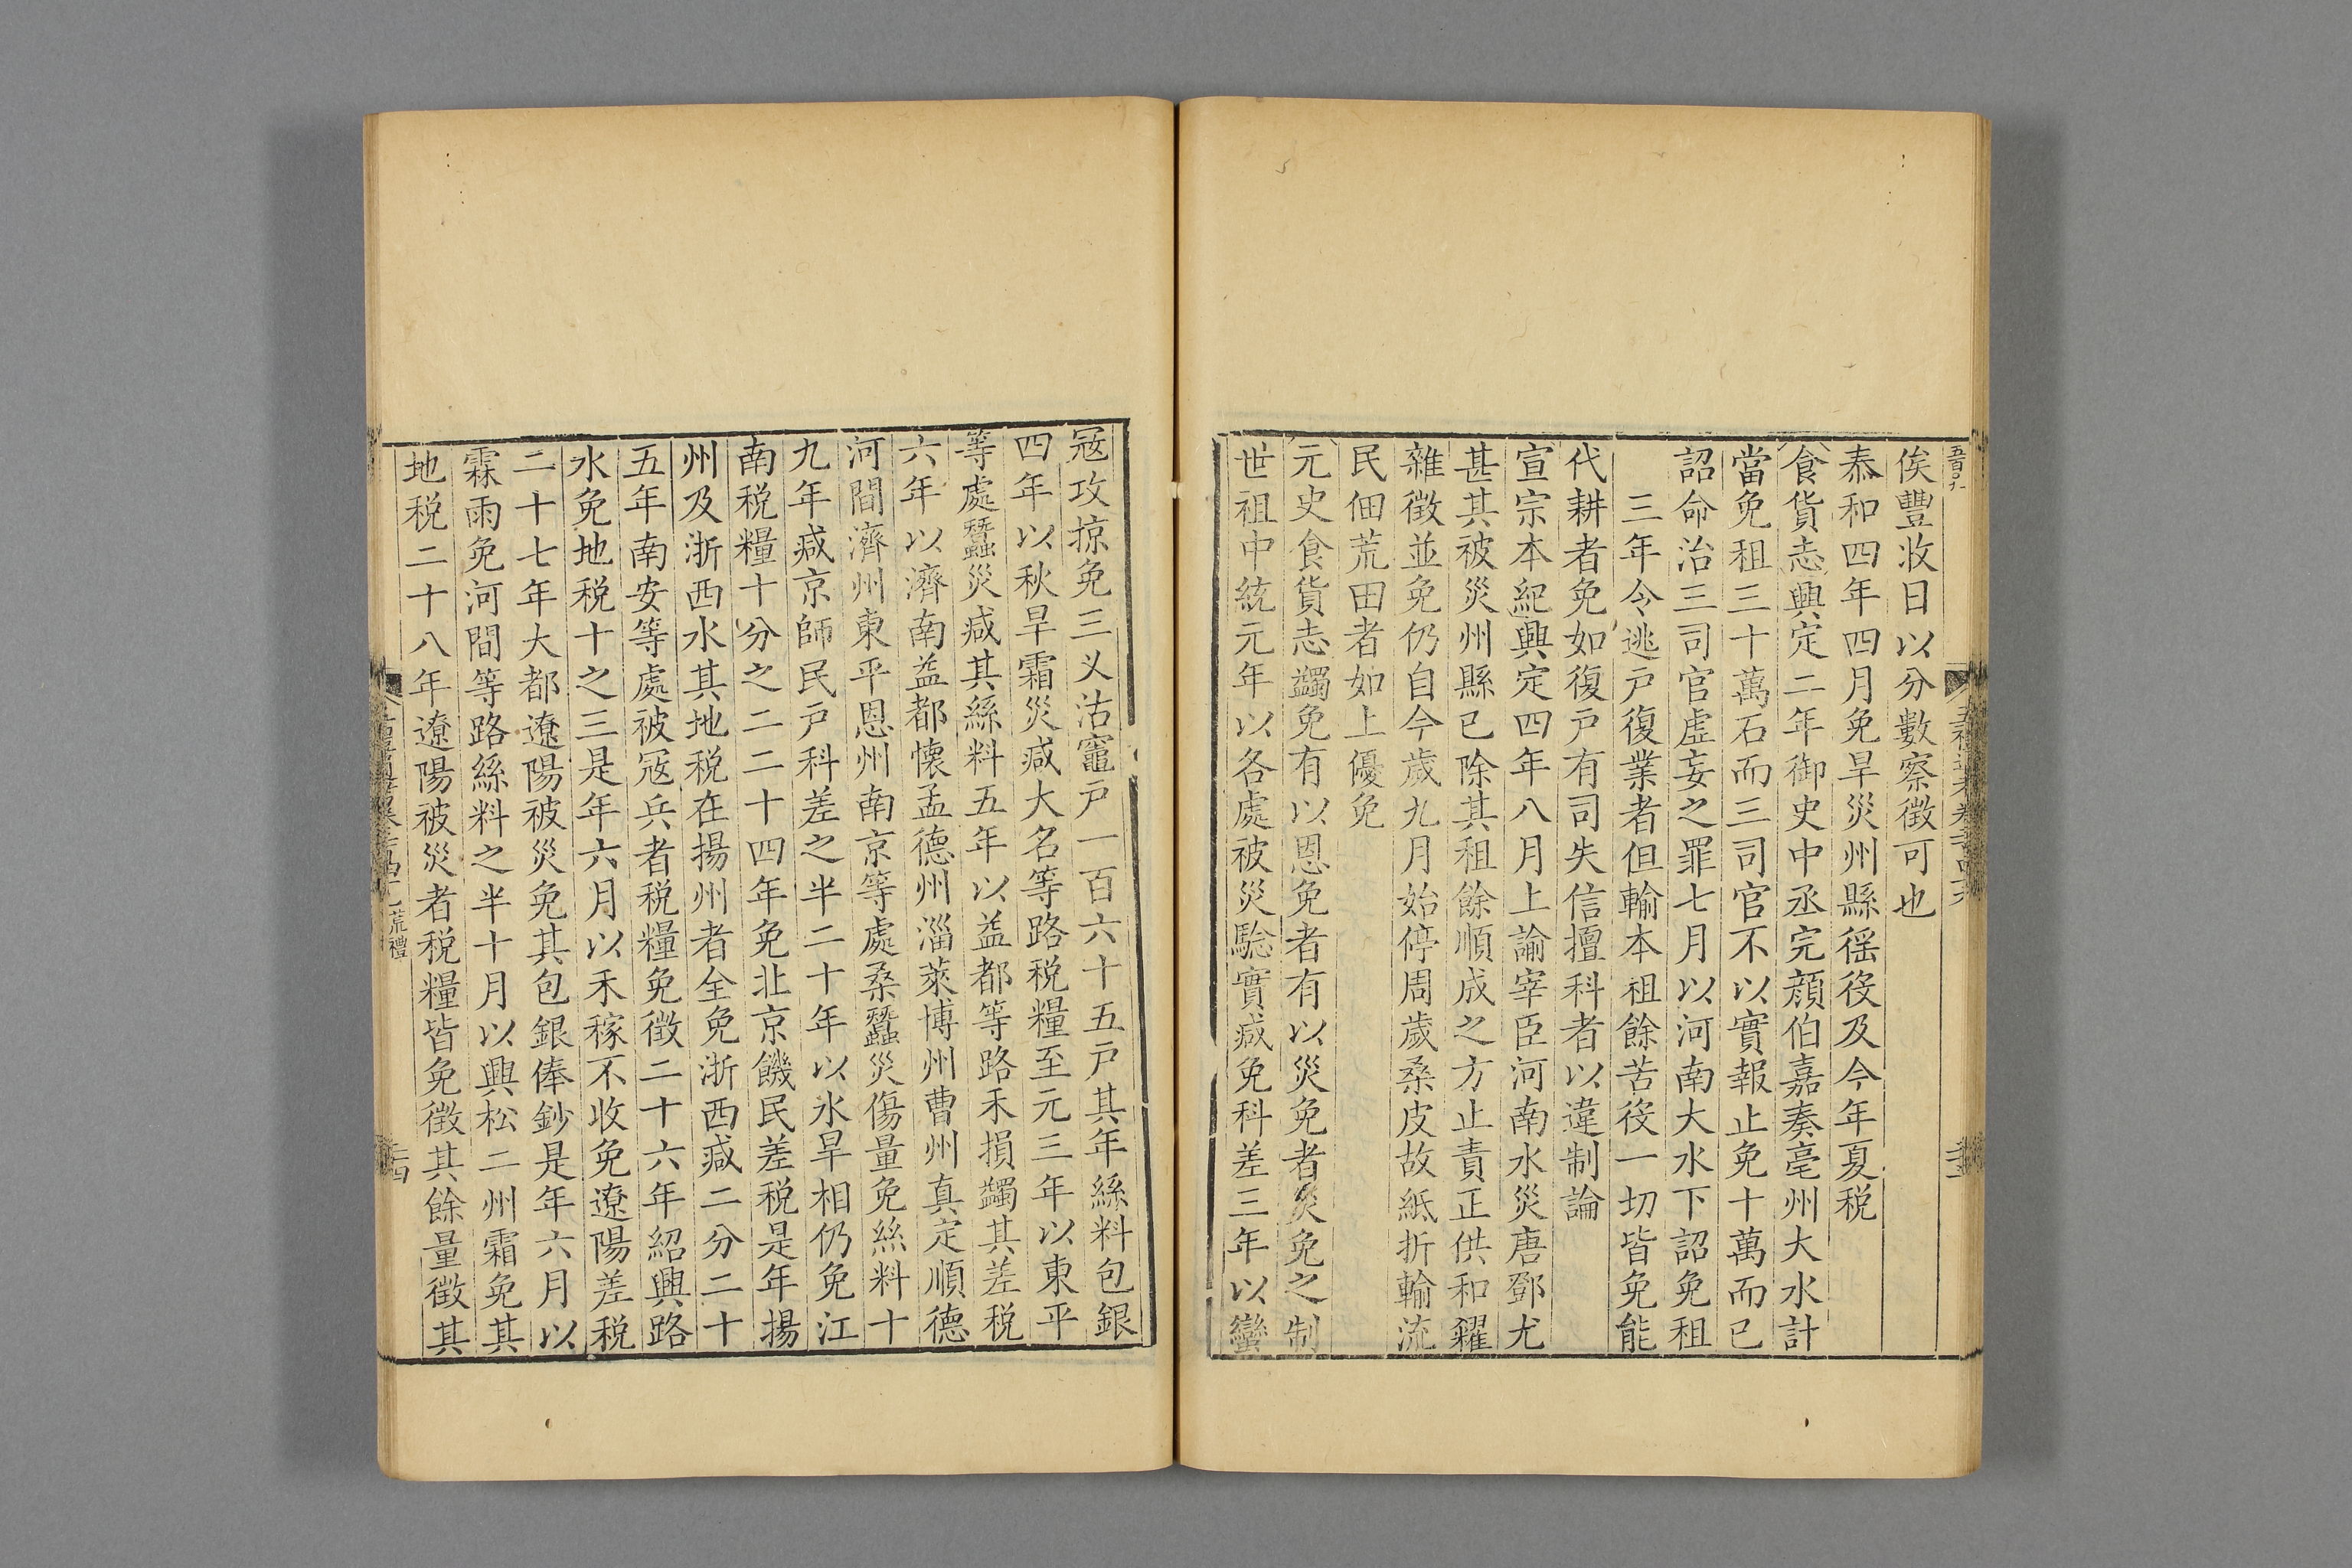 俟豐收日以分數察徵可也
泰和四年四月免旱災州縣徭役及今年夏税
食貨志興定二年御史中丞完顔伯嘉奏亳州大水計
當免租三十萬石而三司官不以實報止免十萬而已
詔命治三司官虚妄之罪七月以河南大水下詔免租
三年令逃戸復業者但輸本租餘苦役一切皆免能
代耕者免如復戸有司失信擅科者以違制論
宣宗本紀興定四年八月上諭宰臣河南水災唐鄧尤
甚其被災州縣已除其租餘順成之方止責正供和糴
雜徵並免仍自今歲九月始停周歲桑皮故紙折輸流
民佃荒田者如上優免
元史食貨志蠲免有以恩免者有以災免者災免之制
世祖中統元年以各處被災驗實减免科差三年以蠻
宼攻掠免三义沽竈戸一百六十五戸其年絲料包銀
四年以秋旱霜災减大名等路税糧至元三年以東平
等處蠶災减其絲料五年以益都等路禾損蠲其差税
六年以濟南益都懷孟德州淄萊博州曹州真定順德
河間濟州東平恩州南京等處桑蠶災傷量免絲料十
九年减京師民戸科差之半二十年以水旱相仍免江
南税糧十分之二二十四年免北京饑民差税是年揚
州及浙西水其地税在揚州者全免浙西减二分二十
五年南安等處被宼兵者税糧免徵二十六年紹興路
水免地税十之三是年六月以禾稼不收免遼陽差税
二十七年大都遼陽被災免其包銀俸鈔是年六月以
霖雨免河間等路絲料之半十月以興松二州霜免其
地税二十八年遼陽被災者税糧皆免徵其餘量徵其